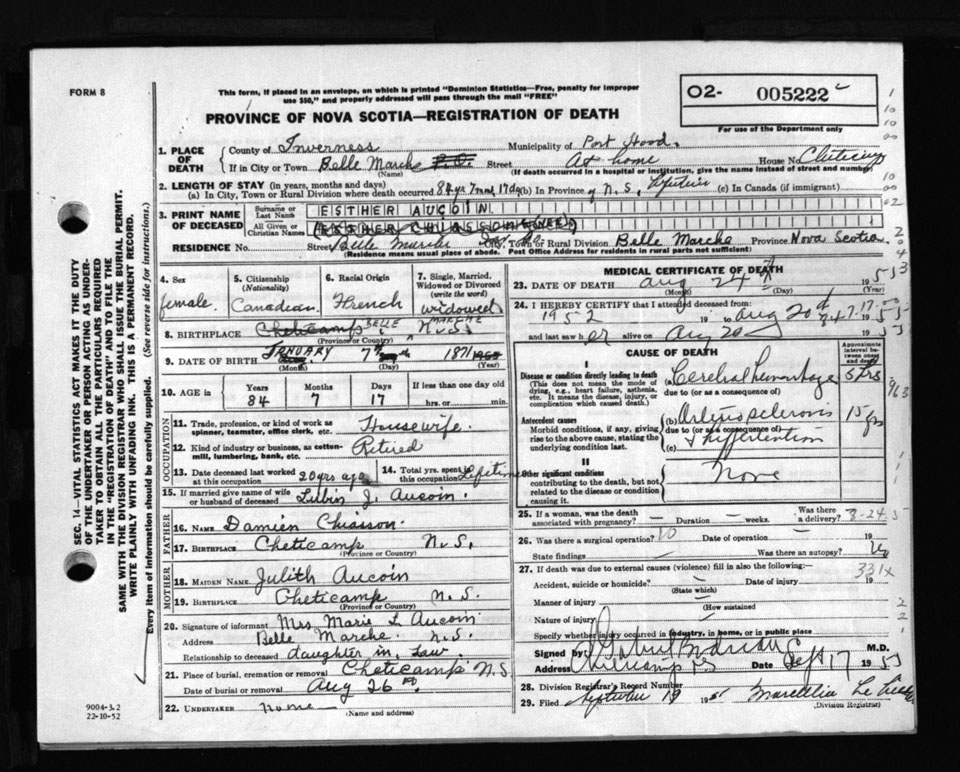 FORM 8
This form, if placed in an envelope, on which is printed "Dominion Statistics—Free, penalty for improper
use $50," and properly addressed will pass through the mail "FREE"
PROVINCE OF NOVA SCOTIA—REGISTRATION OF DEATH
O2- 005222
For use of the Department only
1. PLACE OF DEATH
County of Inverness Municipality of Port Hood.
If in City or Town Belle Marche P.O. Street At home House No. Cheticamp
(Name) (If death occurred in hospital or institution, give the name instead of street and number)
2. LENGTH OF STAY (in years, months and days)
(a) In City, Town or Rural Division where death occurred 84 yr 7 mos 17 da (b) In Province of N.S. Lifetime (c) In Canada (if immigrant)
3. PRINT NAME OF DECEASED
Surname or Last Name ESTHER AUCOIN
All Given or Christian Names (ESTHER CHIASSON (NEE))
RESIDENCE No. Street Belle Marche City, Town or Rural Division Belle Marche Province Nova Scotia
(Residence means usual place of abode. Post Office Address for residents in rural parts not sufficient)
4. Sex female.
5. Citizenship (Nationality) Canadian.
6. Racial Origin French
7. Single, Married, Widowed or Divorced (write the word) widowed
8. BIRTHPLACE Cheticamp BELLE MARCHE N.S.
(Province or Country)
9. DATE OF BIRTH JANUARY 7th 1871
(Month) (Day) (Year)
10. AGE in Years 84 Months 7 Days 17 If less than one day old hrs. or min.
OCCUPATION
11. Trade, profession, or kind of work as spinner, teamster, office clerk, etc. Housewife.
12. Kind of industry or business, as cotton-mill, lumbering, bank, etc. Retired
13. Date deceased last worked at this occupation 20 yrs ago
14. Total yrs. spent in this occupation Lifetime
15. If married give name of wife or husband of deceased Lubin J. Aucoin.
FATHER
16. NAME Damien Chiasson.
17. BIRTHPLACE Cheticamp N.S.
(Province or Country)
MOTHER
18. MAIDEN NAME Julith Aucoin
19. BIRTHPLACE Cheticamp N.S.
(Province or Country)
20. Signature of informant Mrs Marie L Aucoin
Address Belle Marche. N.S.
Relationship to deceased daughter in law.
21. Place of burial, cremation or removal Cheticamp N.S
Date of burial or removal Aug 26
22. UNDERTAKER none
(Name and address)
MEDICAL CERTIFICATE OF DEATH
23. DATE OF DEATH Aug 24 19 55
(Month) (Day)
24. I HEREBY CERTIFY that I attended deceased from:
1952 19 to Aug 20 19 55
and last saw her alive on Aug 20 19 55
CAUSE OF DEATH
Approximate interval between onset and death
I
Disease or condition directly leading to death
(This does not mean the mode of dying, e.g., heart failure, asthenia, etc. It means the disease, injury, or complication which caused death.)
(a) Cerebral hemorrhage 5 hrs
due to (or as a consequence of)
Antecedent causes
Morbid conditions, if any, giving rise to the above cause, stating the underlying condition last.
(b) Arteriosclerosis 15 yrs
due to (or as a consequence of)
& hypertention
(c)
II
Other significant conditions
contributing to the death, but not related to the disease or condition causing it.
None
25. If a woman, was the death associated with pregnancy? — Duration — weeks. Was there a delivery?
8-24-5
26. Was there a surgical operation? no Date of operation — 19
State findings — Was there an autopsy? no
27. If death was due to external causes (violence) fill in also the following:—
331X
Accident, suicide or homicide? — Date of injury 19
(State which)
Manner of injury —
(How sustained
Nature of injury —
Specify whether injury occurred in industry, in home, or in public place
Signed by M.D.
Address Cheticamp NS Date Sept 17 19 55
28. Division Registrar's Record Number
29. Filed September 19 1955
(Division Registrar)
SEC. 14—VITAL STATISTICS ACT MAKES IT THE DUTY
OF THE UNDERTAKER OR PERSON ACTING AS UNDER-
TAKER TO OBTAIN ALL THE PARTICULARS REQUIRED
IN THE "REGISTRATION OF DEATH" AND TO FILE THE
SAME WITH THE DIVISION REGISTRAR WHO SHALL ISSUE THE BURIAL PERMIT.
WRITE PLAINLY WITH UNFADING INK. THIS IS A PERMANENT RECORD.
Every item of information should be carefully supplied. (See reverse side for instructions.)
9004-3.2
22-10-52